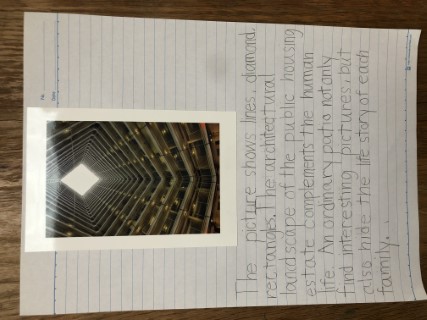 No
Date
The picture shows lines, diamond,
rectangles. The architectural
landscape of the public housing
estate complements the human
life. An ordinary patio not only
find interesting pictures, but
also hide the life story of each
family.